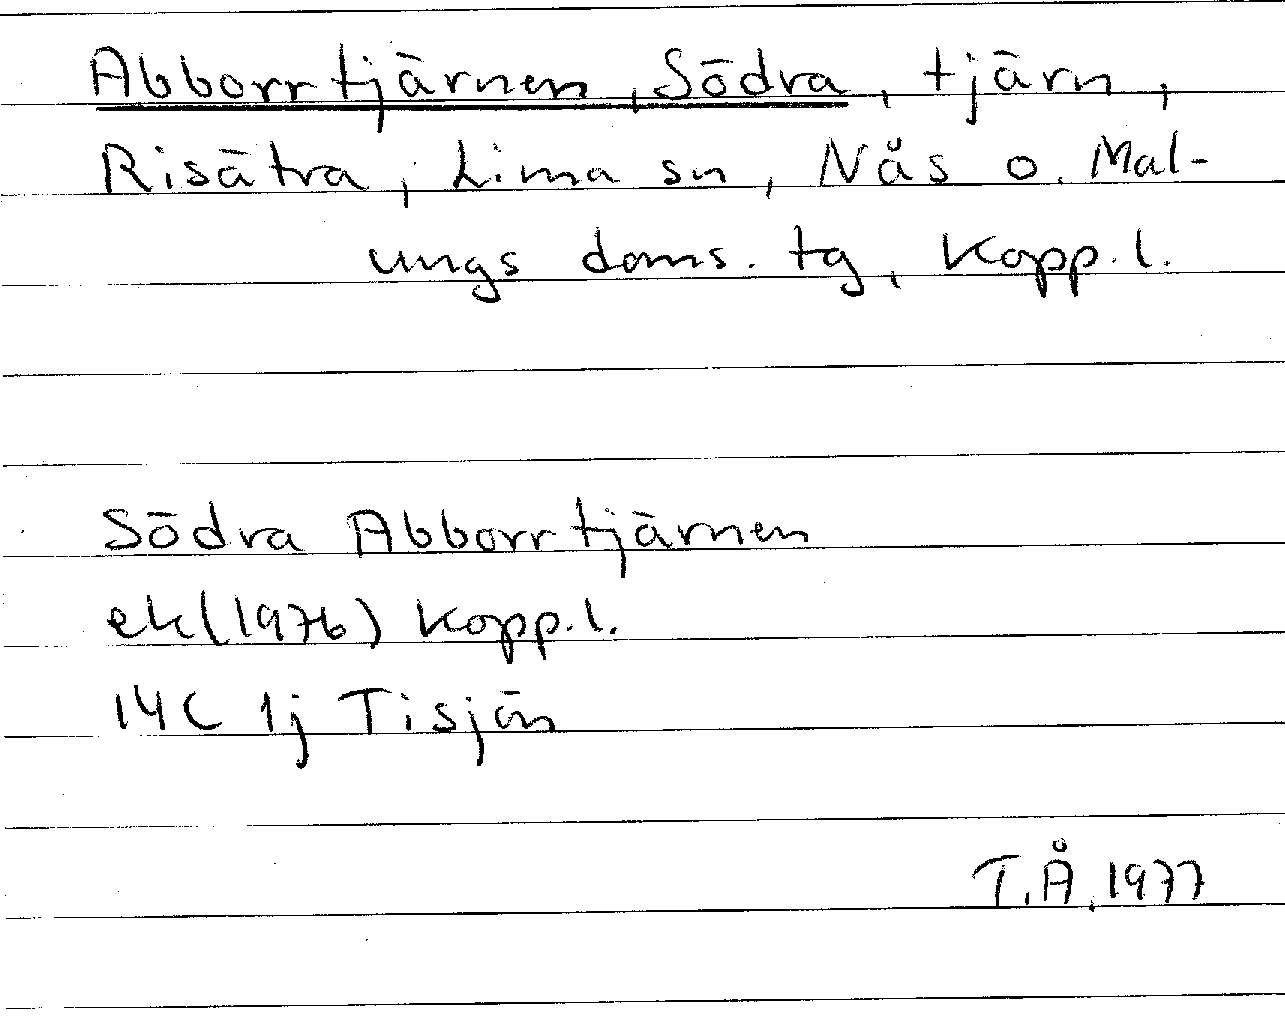 Abborrtjärnen, Södra, tjärn,
Risätra, Lima sn, Nås o. Mal-
ungs doms. tg, Kopp. l.
Södra Abborrtjärnen
ek (1976) Kopp. l.
14C 1j Tisjön
T.Å. 1977